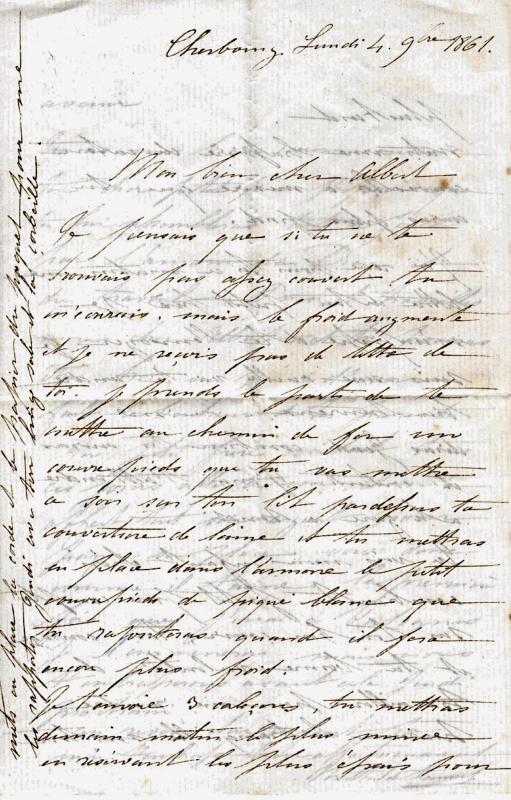 Cherbourg Lundi 4. 9bre 1861.
Mon bien cher Albert
Je pensais que si tu ne te
trouvais pas assez couvert tu
m'écrirais. mais le froid augmente
et je ne reçois pas de lettre de
toi. je prends le parti de te
mettre au chemin de fer un
couvre pieds que tu vas mettre
ce soir sur ton lit pardessus ta
couverture de laine et tu mettras
en place dans l'armoire le petit
couvrepieds de piqué blanc que
tu rajouteras quand il fera
encore plus froid.
Je t'envoie 3 caleçons, tu mettras
demain matin le plus mince
en réservant les plus épais pour
mets en place la corde et le papier du paquet pour me
les rapporter avec ton linge sale et la corbeille.